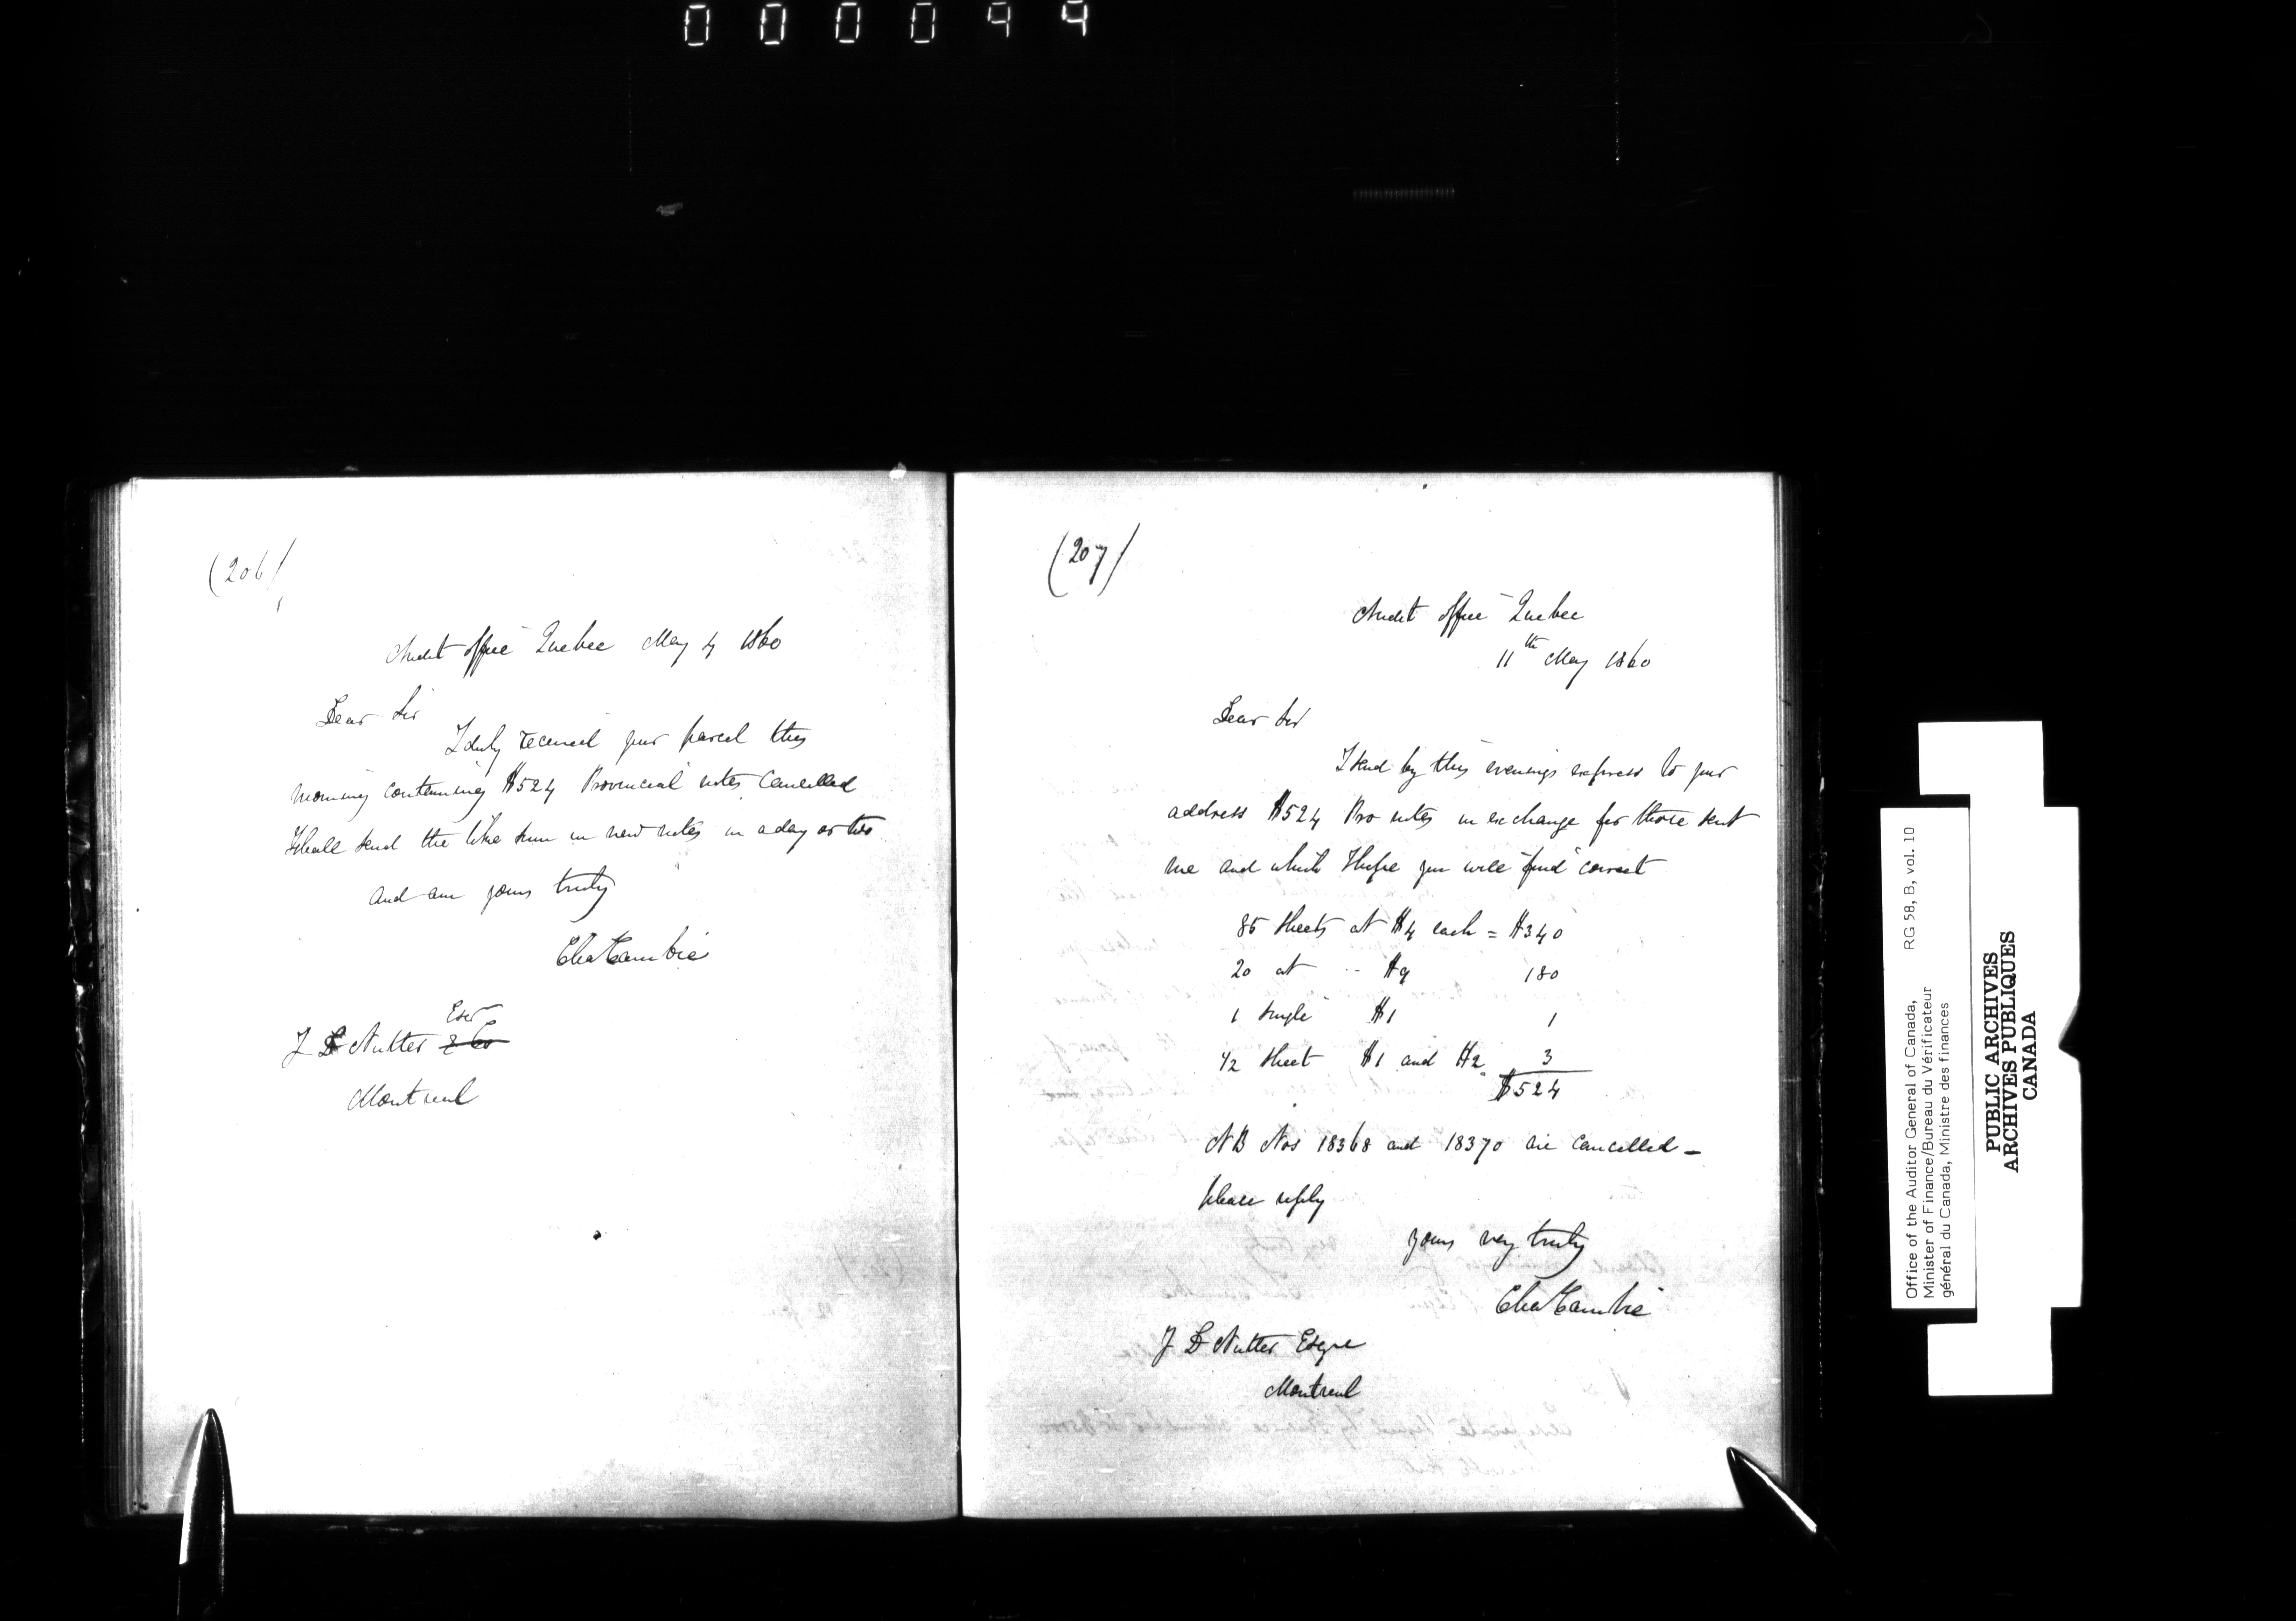 000099
(206)
Audit office Quebec May 4 1860
Dear Sir
I duly received your parcel this
morning containing $524 Provincial notes cancelled
I shall send the like sum in new notes in a day or two
and am yours truly
Chas Cambie
Esqr
J D Nutter & Co
Montreal
(207)
Audit office Quebec
11th May 1860
Dear Sir
I send by this evenings express to your
address $524 Pro notes in exchange for those sent
me and which I hope you will find correct
85 sheets at $4 each = $340
20 at .. $9 180
1 single $1 1
1/2 sheet $1 and $2 3
$524
NB Nos 18368 and 18370 are cancelled –
please reply
yours very truly
Chas Cambie
J D Nutter Esqre
Montreal
Office of the Auditor General of Canada, RG 58, B, vol. 10
Minister of Finance/Bureau du Vérificateur
général du Canada, Ministre des finances
PUBLIC ARCHIVES
ARCHIVES PUBLIQUES
CANADA